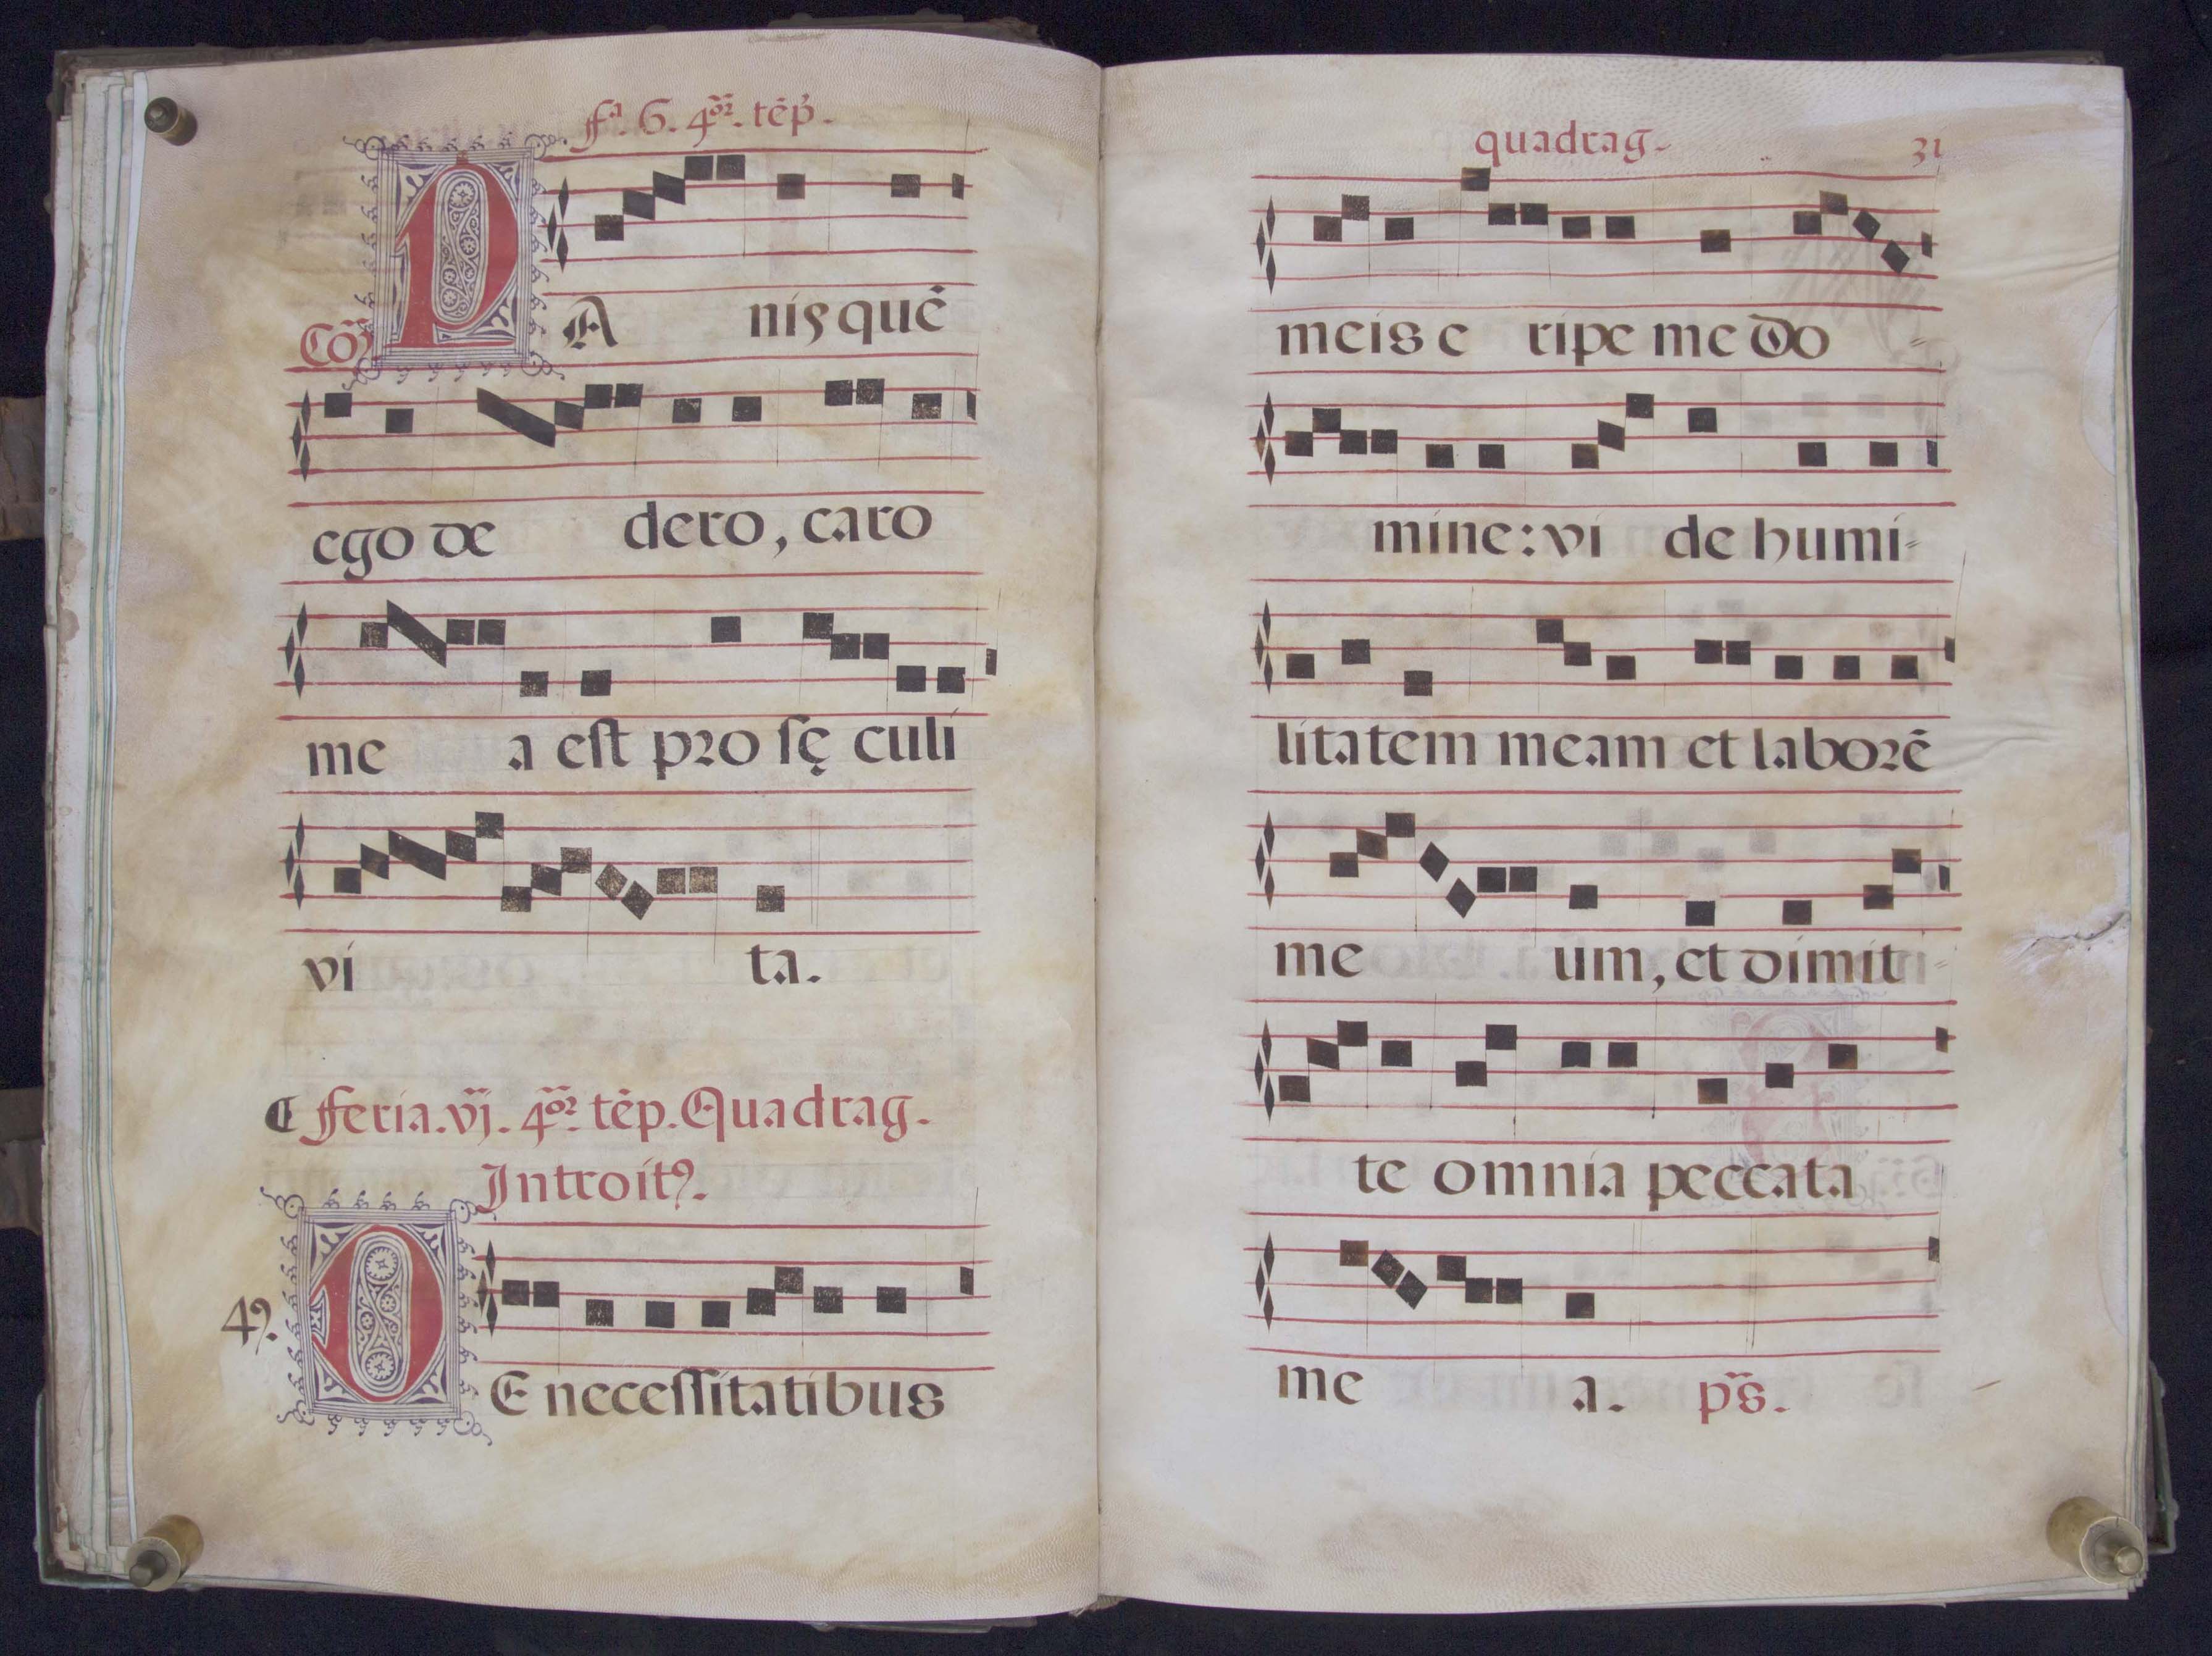 fª. 6. 4oꝛ̃. tẽp̃.
Cõ͂
PA nis quẽ
ego de dero, caro
me a eſt pꝛo ſę culi
vi ta.
¶ fferia. vj. 4oꝛ̃. tẽp. Quadrag.
Introitꝰ.
4ꝰ.
DE neceſſitatibus
quadrag.
31
meis e ripe me do -
mine: vi de humi-
litatem meam et laboꝛẽ
me um, et dimit-
te omnia peccata
me a. ps̃.